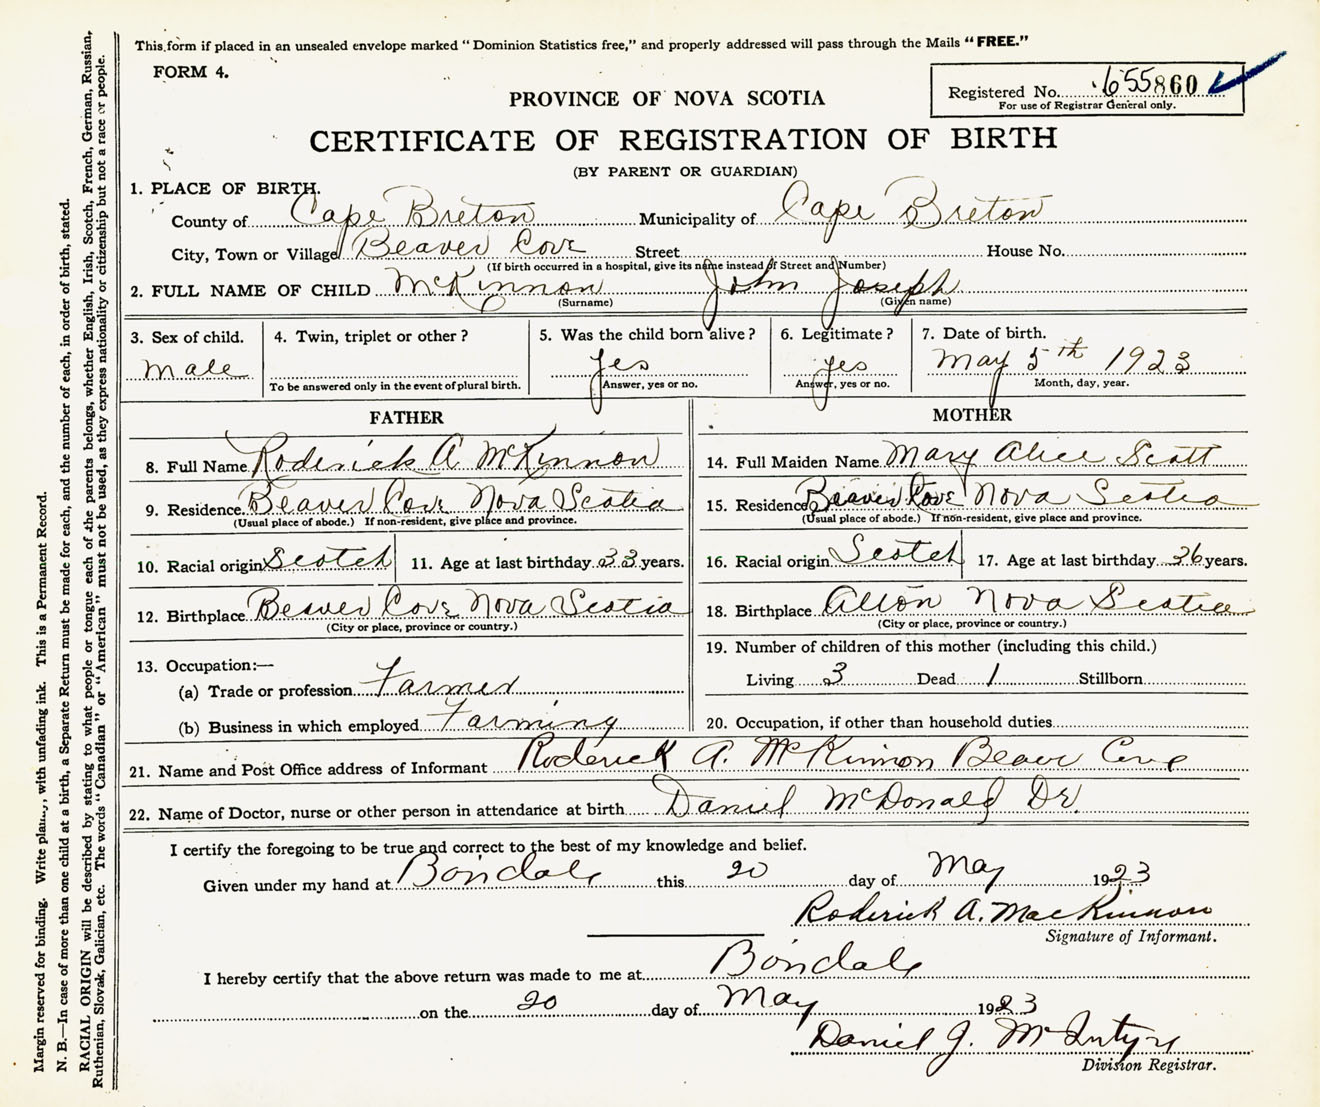 This form if placed in an unsealed envelope marked "Dominion Statistics free," and properly addressed will pass through the Mails "FREE."
FORM 4.
Registered No. 655860
For use of Registrar General only.
PROVINCE OF NOVA SCOTIA
CERTIFICATE OF REGISTRATION OF BIRTH
(BY PARENT OR GUARDIAN)
1. PLACE OF BIRTH.
County of Cape Breton Municipality of Cape Breton
City, Town or Village Beaver Cove Street House No.
(If birth occurred in a hospital, give its name instead of Street and Number)
2. FULL NAME OF CHILD McKinnon John Joseph
(Surname) (Given name)
3. Sex of child. 4. Twin, triplet or other? 5. Was the child born alive? 6. Legitimate? 7. Date of birth.
Male yes yes May 5th 1923
To be answered only in the event of plural birth. Answer, yes or no. Answer, yes or no. Month, day, year.
FATHER
8. Full Name Roderick A McKinnon
9. Residence Beaver Cove Nova Scotia
(Usual place of abode.) If non-resident, give place and province.
10. Racial origin Scotch 11. Age at last birthday 33 years.
12. Birthplace Beaver Cove Nova Scotia
(City or place, province or country.)
13. Occupation:—
(a) Trade or profession Farmer
(b) Business in which employed Farming
MOTHER
14. Full Maiden Name Mary Alice Scott
15. Residence Beaver Cove Nova Scotia
(Usual place of abode.) If non-resident, give place and province.
16. Racial origin Scotch 17. Age at last birthday 36 years.
18. Birthplace Alton Nova Scotia
(City or place, province or country.)
19. Number of children of this mother (including this child.)
Living 3 Dead 1 Stillborn
20. Occupation, if other than household duties
21. Name and Post Office address of Informant Roderick A. McKinnon Beaver Cove
22. Name of Doctor, nurse or other person in attendance at birth Daniel McDonald Dr
I certify the foregoing to be true and correct to the best of my knowledge and belief.
Given under my hand at Boisdale this 20 day of May 1923
Roderick A. MacKinnon
Signature of Informant.
I hereby certify that the above return was made to me at Boisdale
on the 20 day of May 1923
Daniel J. McIntyre
Division Registrar.
Margin reserved for binding. Write plainly, with unfading ink. This is a Permanent Record.
N. B.—In case of more than one child at a birth, a Separate Return must be made for each, and the number of each, in order of birth, stated.
RACIAL ORIGIN will be described by stating to what people or tongue each of the parents belongs, whether English, Irish, Scotch, French, German, Russian,
Ruthenian, Slovak, Galician, etc. The words "Canadian" or "American" must not be used, as they express nationality or citizenship but not a race or people.